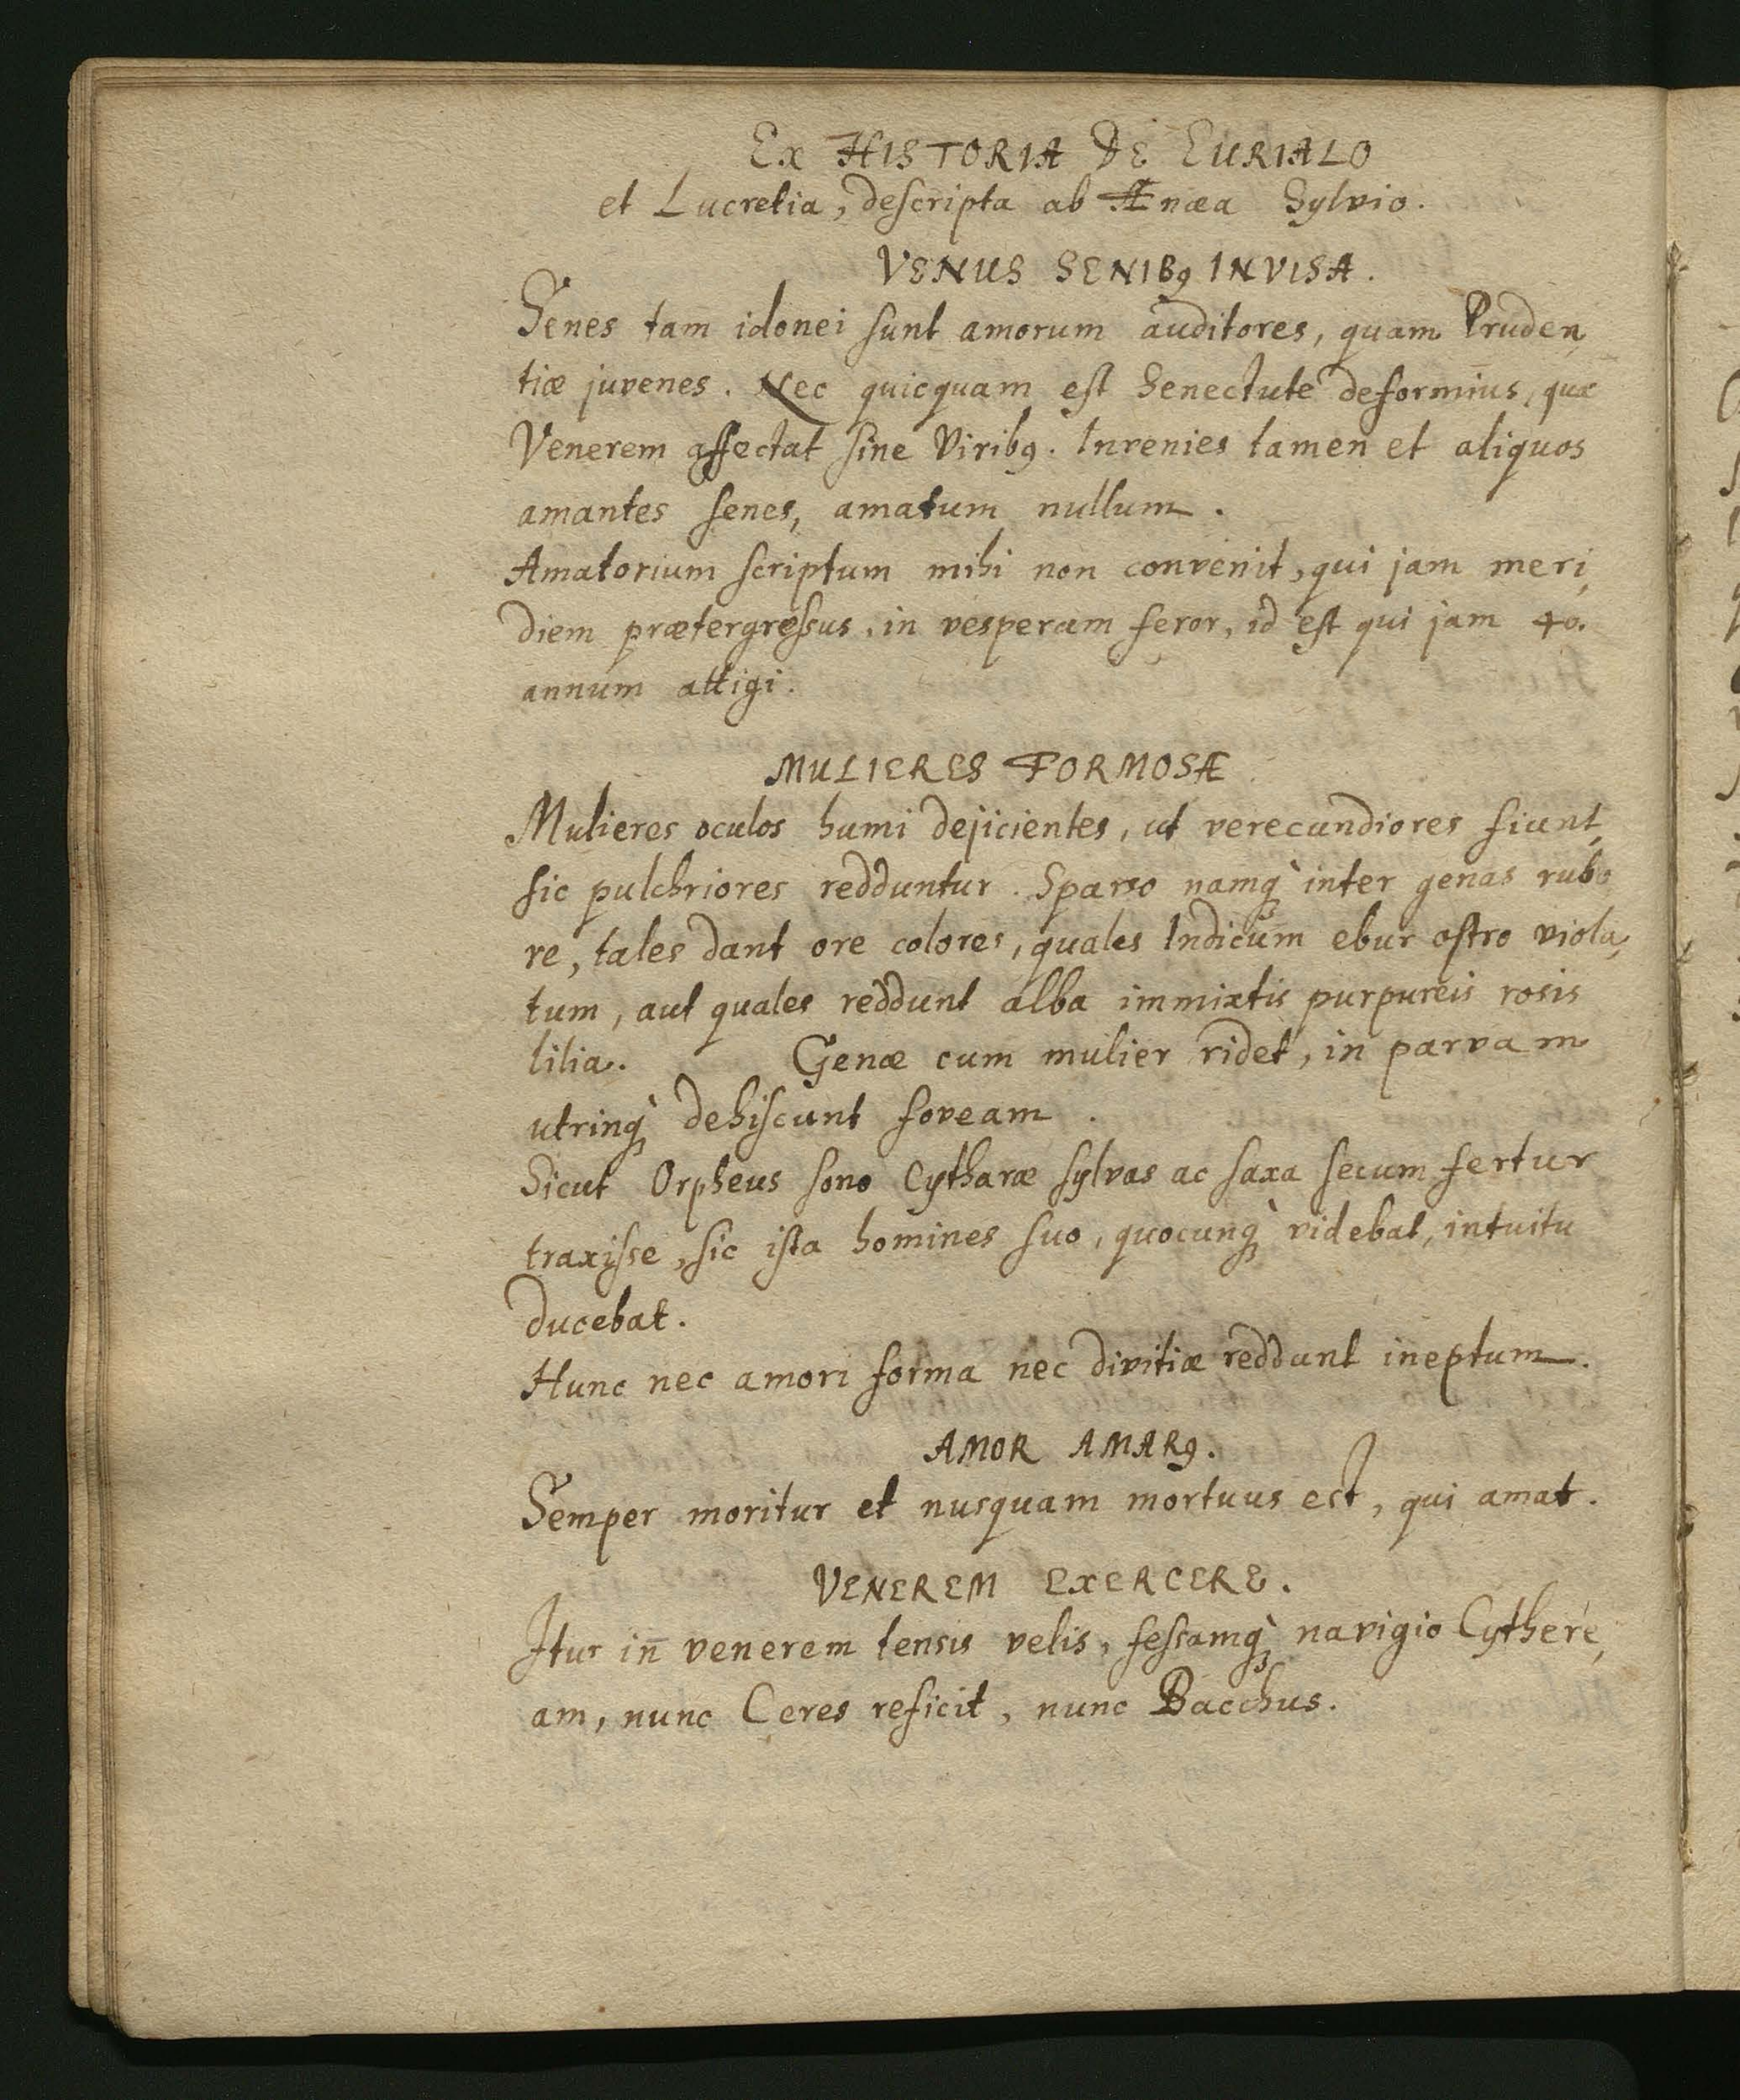 Ex HISTORIA DE EURIALO
et Lucretia, descripta ab Ænæa Sylvio.
VENUS SENIBꝰ INVISA.
Senes tam idonei sunt amorum auditores, quam Pruden,
tiæ juvenes. Nec quicquam est Senectute deformius, quæ
Venerem affectat sine Viribꝰ. Invenies tamen et aliquos
amantes senes, amatum nullum.
Amatorium scriptum mihi non convenit, qui jam meri,
diem prætergressus, in vesperam feror, id est qui jam 40.
annum attigi.
MULIERES FORMOSÆ
Mulieres oculos humi dejicientes, ut verecundiores fiunt,
sic pulchriores redduntur. Sparso namq̀ inter genas rubo
re, tales dant ore colores, quales Indicum ebur ostro viola,
tum, aut quales reddunt alba immixtis purpureis rosis
lilia. Genæ cum mulier ridet, in parvam
utrinq̀ dehiscunt foveam.
Sicut Orpheus sono Cytharæ sylvas ac saxa secum fertur
traxisse, sic ista homines suo, quocunq̀ videbat, intuitu
ducebat.
Hunc nec amori forma nec divitiæ reddunt ineptum.
AMOR AMARꝰ.
Semper moritur et nusquam mortuus est, qui amat.
VENEREM EXERCERE.
Itur in̄ venerem tensis velis, fessamq̀ navigio Cythere,
am, nunc Ceres reficit, nunc Bacchus.